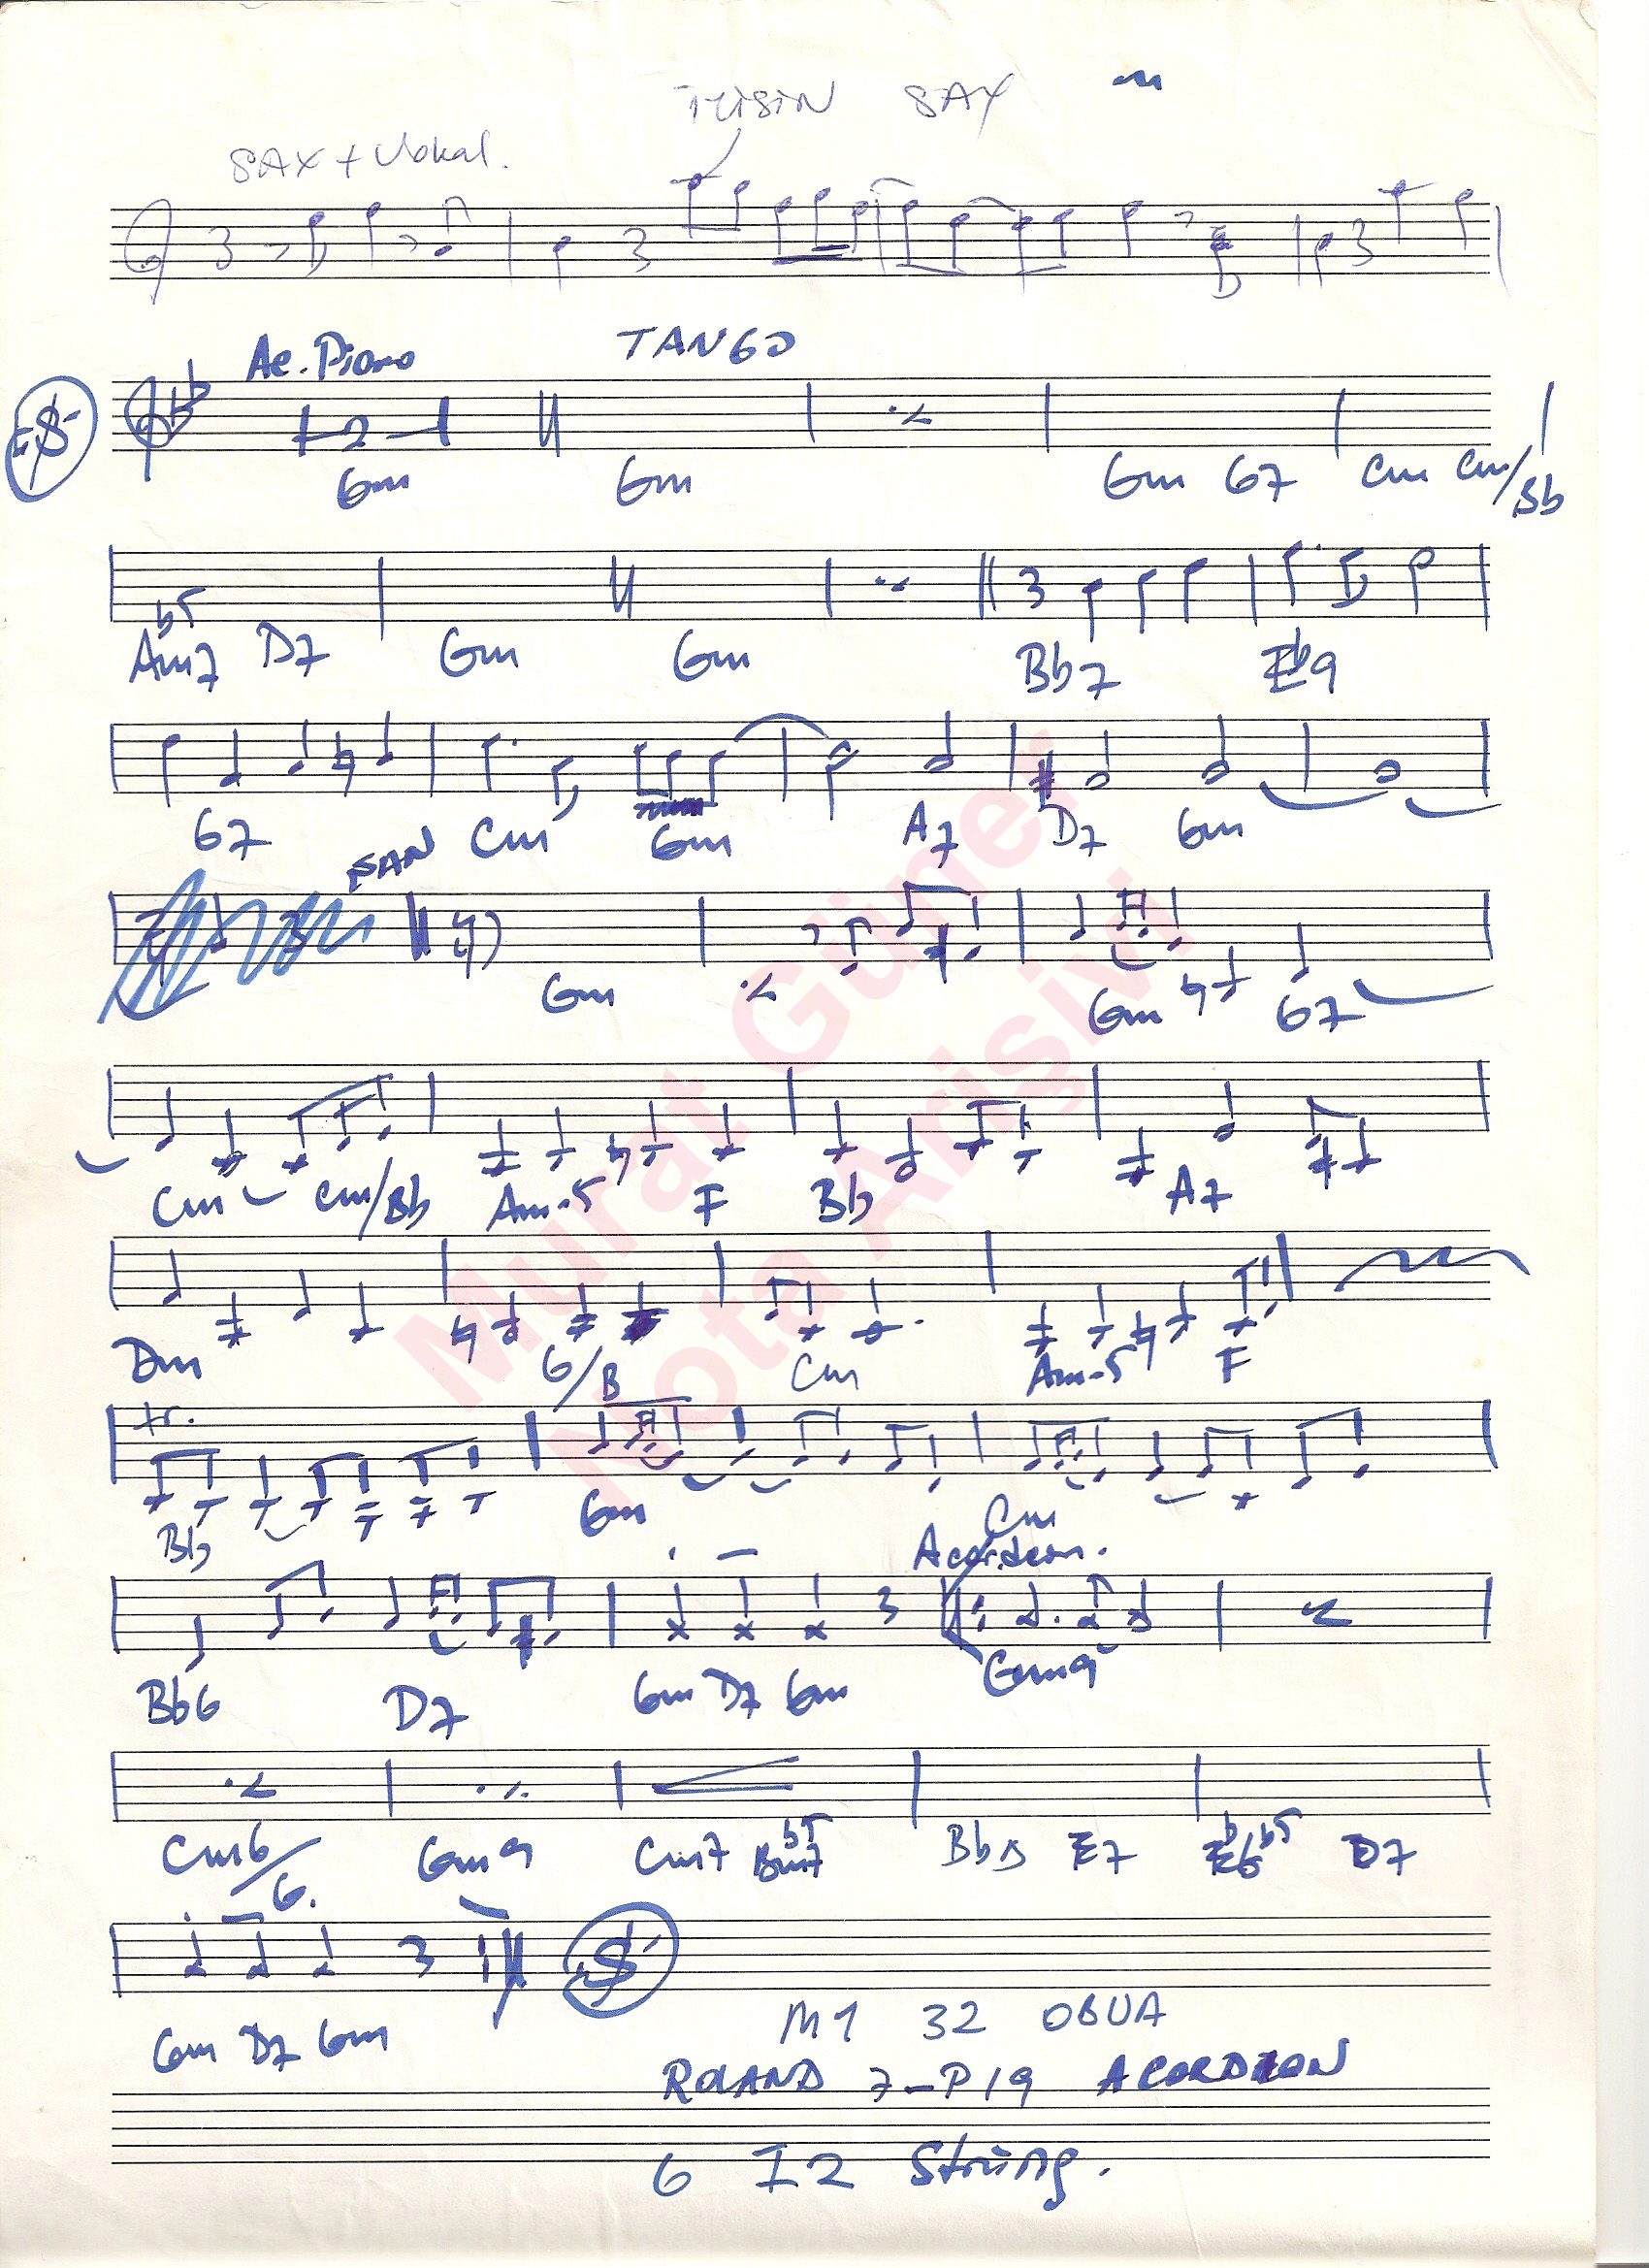 SAX
SAX + Vokal.
Ac. Piano TANGO
2
Gm Gm Gm G7 Cm Cm/Bb
Am7b5 D7 Gm Gm Bb7 Eb9
G7 Cm Gm A7 D7 Gm
ŞAN
Gm Gm G7
Cm Cm/Bb Am-5 F Bb A7
Dm G/B Cm Am-5 F
tr.
Bb Gm Cm
Acordeon.
Bb6 D7 Gm D7 Gm Gm9
Cm6/G. Gm9 Cm7 Bm7b5 E7 D7
Gm D7 Gm
M1 32 OBUA
ROLAND 7-P19 ACORDEON
6 I2 String.
Murat Güner
Nota Arişivi